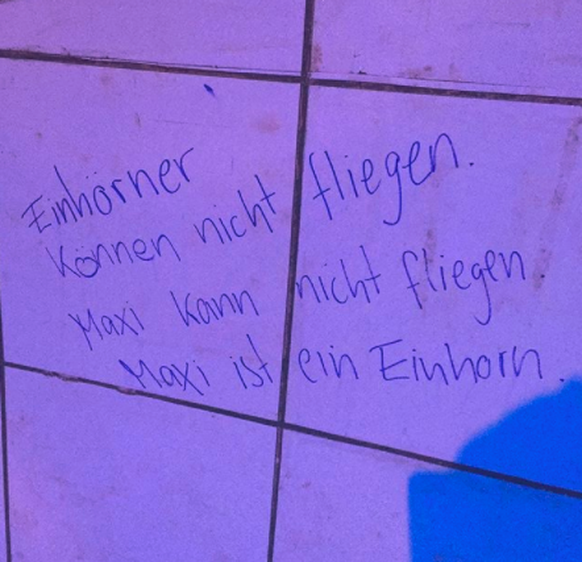 Einhörner
können nicht fliegen.
Maxi kann nicht fliegen.
Maxi ist ein Einhorn.